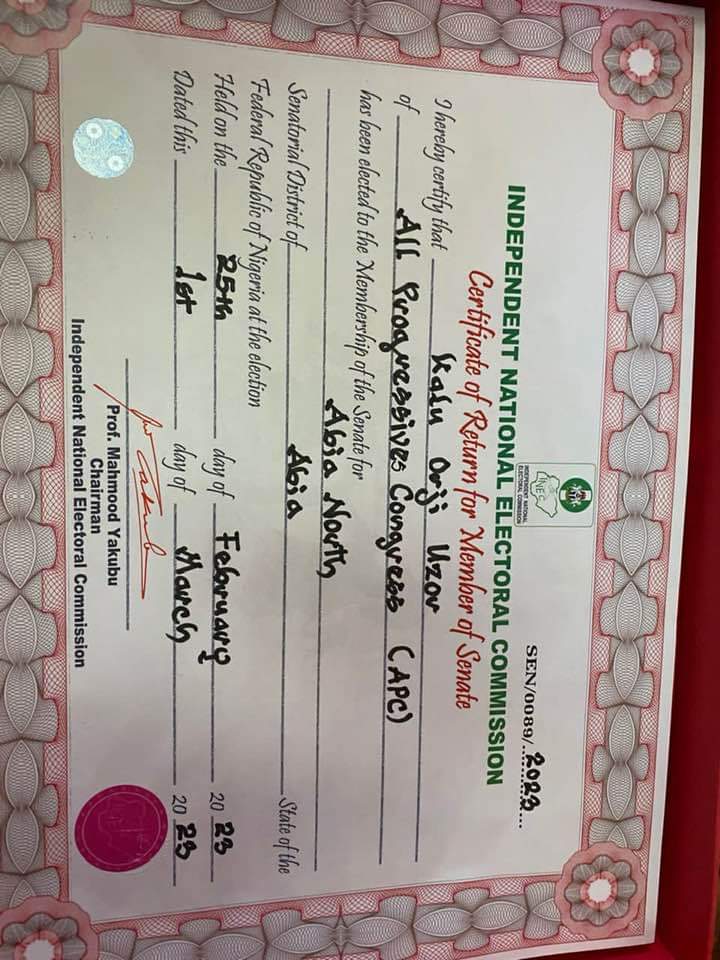 SEN/0089/...2023...
INEC
INDEPENDENT NATIONAL
ELECTORAL COMMISSION
INDEPENDENT NATIONAL ELECTORAL COMMISSION
Certificate of Return for Member of Senate
I hereby certify that Kalu Orji Uzor
of All Progressives Congress (APC)
has been elected to the Membership of the Senate for
Abia North
Senatorial District of Abia State of the
Federal Republic of Nigeria at the election
Held on the 25th day of February 2023
Dated this 1st day of March 2023
Prof. Mahmood Yakubu
Chairman
Independent National Electoral Commission